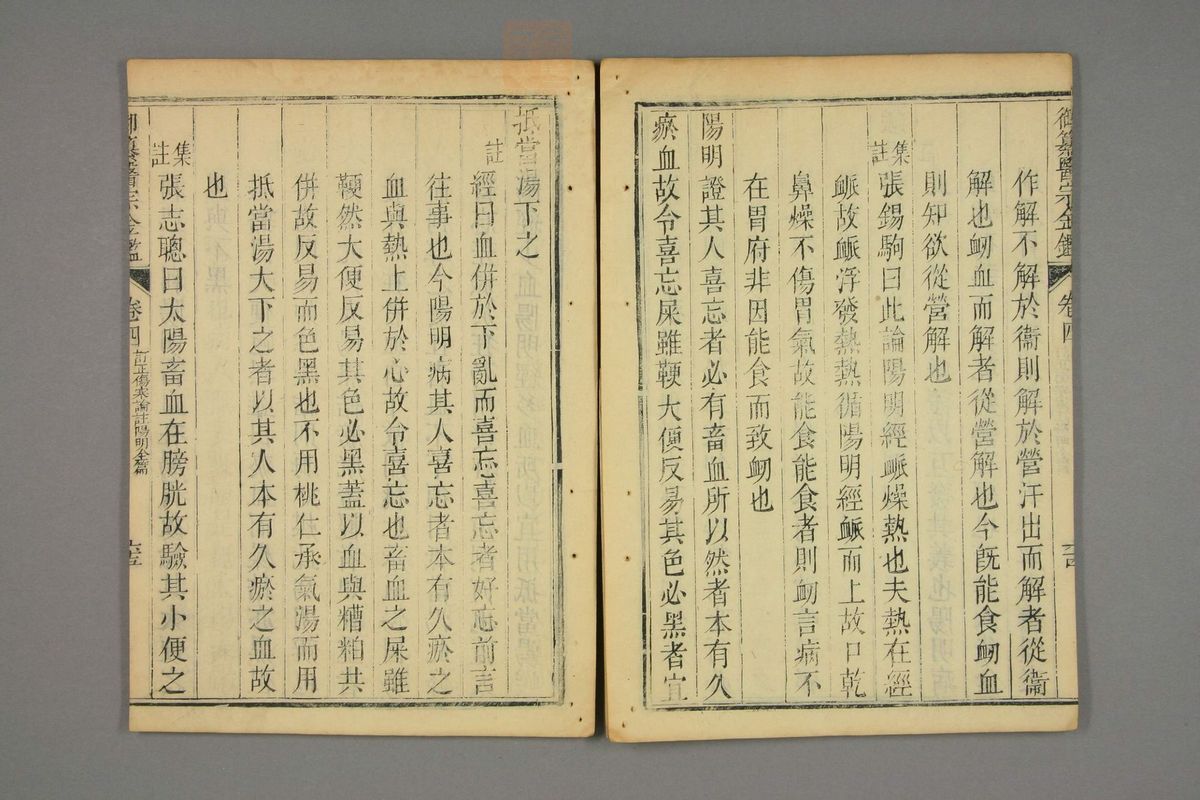 御纂醫宗金鑑 卷四
作解不解於衞則解於營汗出而解者從衞
解也衂血而解者從營解也今既能食衂血
則知欲從營解也
集註
張錫駒曰此論陽明經脈燥熱也夫熱在經
脈故脈浮發熱熱循陽明經脈而上故口乾
鼻燥不傷胃氣故能食能食者則衂言病不
在胃府非因能食而致衂也
陽明證其人喜忘者必有畜血所以然者本有久
瘀血故令喜忘屎雖鞕大便反易其色必黑者宜
抵當湯下之
註
經曰血併於下亂而喜忘喜忘者好忘前言
往事也今陽明病其人喜忘者本有久瘀之
血與熱上併於心故令喜忘也畜血之屎雖
鞕然大便反易其色必黑蓋以血與糟粕共
併故反易而色黑也不用桃仁承氣湯而用
抵當湯大下之者以其人本有久瘀之血故
也
集註
張志聰曰太陽畜血在膀胱故驗其小便之
御纂醫宗金鑑 卷四 訂正傷寒論註陽明全篇